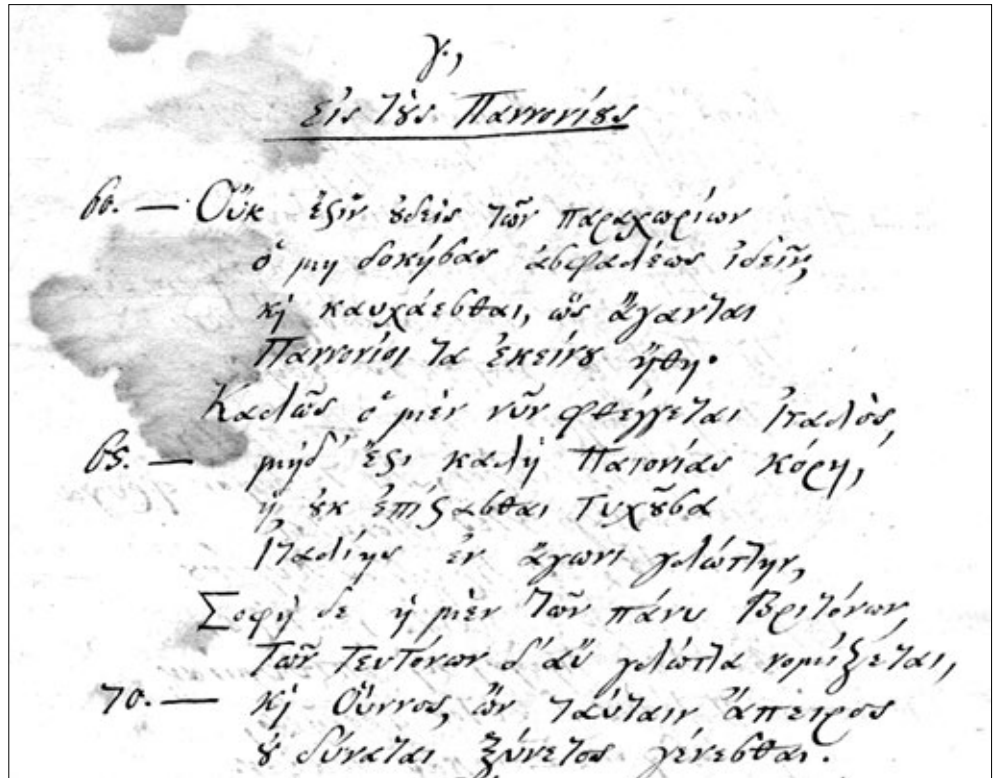 γ.,
εἰς τὸς Παννονίȣς
60. — Οὔκ ἔςιν ȣδεὶς τῶν παραχωρίων
ὁ μη δοκήσας ἀσφαλέως ἰδεῖν,
κὶ καυχάεσθαι, ὥς ἄγανται
Παννονίοι τα ἐκείνȣ ἤθη·
Καλῶς ὁ μὲν νῦν φθέγγεται Ἰταλὸς,
65. — μηδ' ἔςι καλὴ Παιονίας κόρη,
ἣ ȣκ ἐπίςασθαι τυχȣ͂σα
Ἰταλίης ἐν ἄγωνι γλώττην,
Σοφὴ δε ἡ μὲν τῶν πάνυ Βριτόνων,
Τῶν Τευτόνων δ' αὖ γλῶττα νομίζεται,
70. — κὶ Οὔννος, ὢν ταύταιν ἄπειρος
ȣ δύναται ξύνετος γένεσθαι.